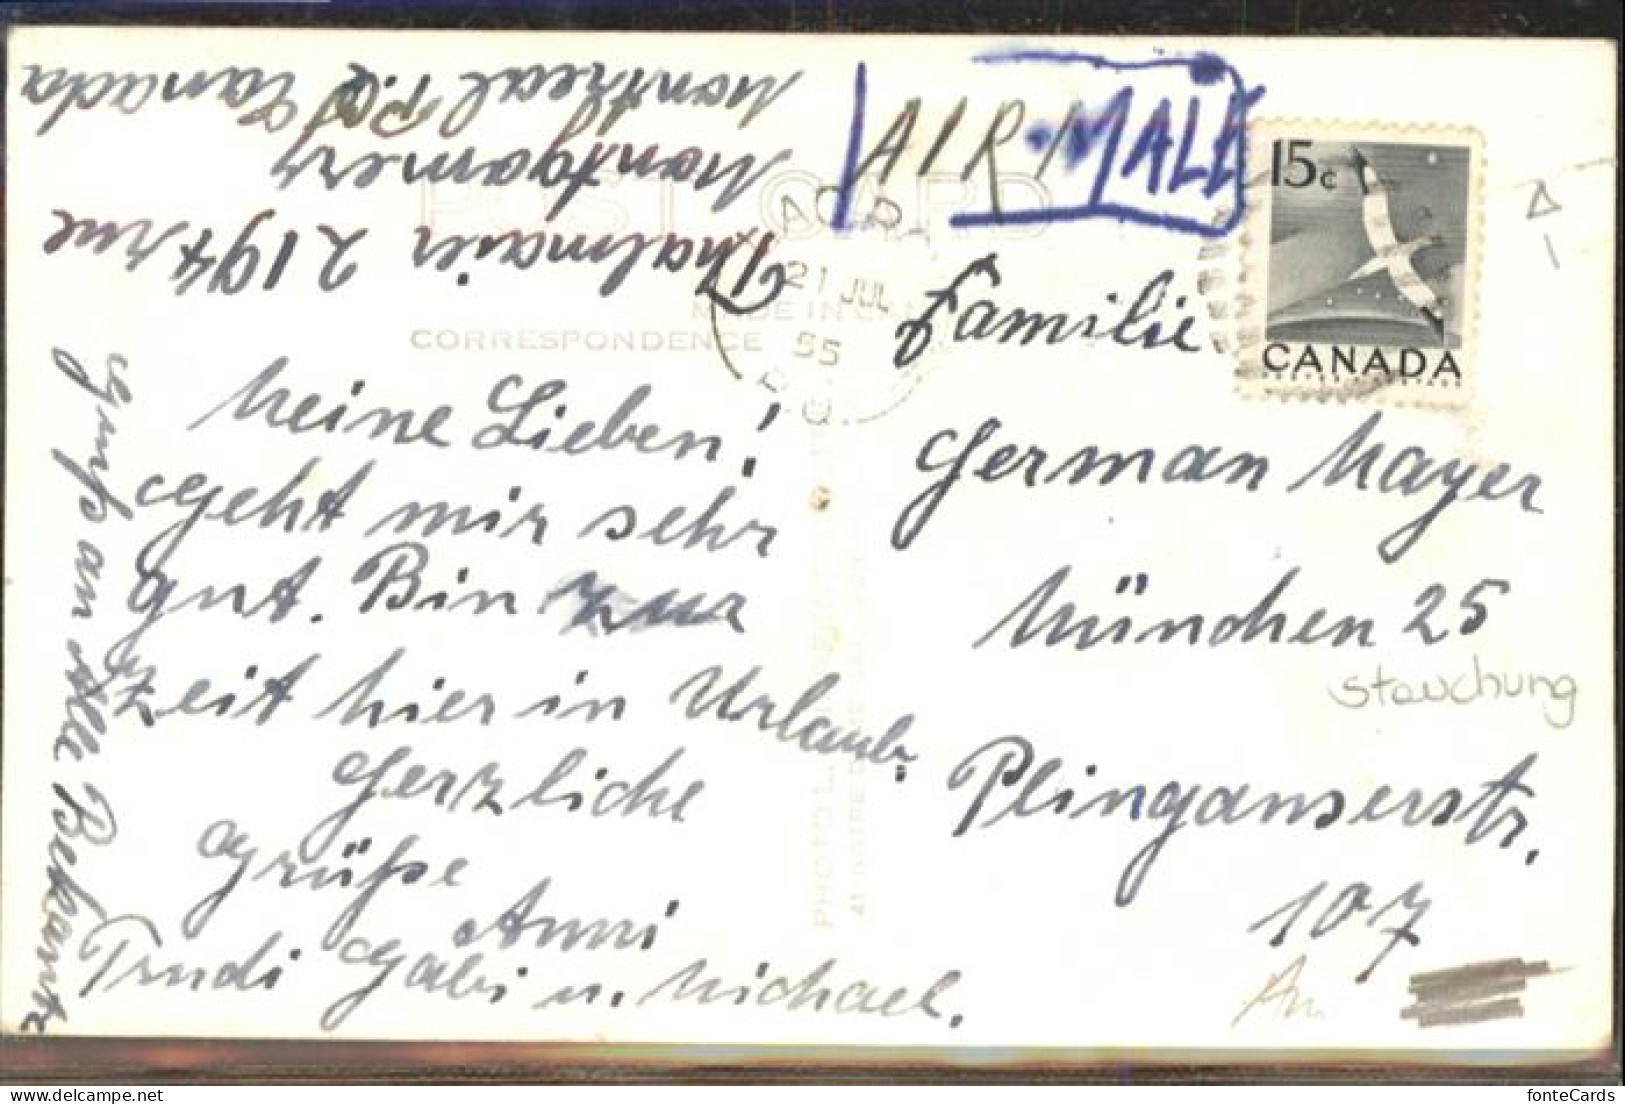 Thalmair 2194 rue
Montgomery
Montreal P.Q Canada
AIR MALE
POST CARD
CORRESPONDENCE
MADE IN
21 JUL
55
P Q
15c
CANADA
Meine Lieben!
Geht mir sehr
gut. Bin zur
zeit hier in Urlaub.
Herzliche
Grüße
Anni
Trudi Gabi u. Michael.
Gruß an Alle Bekannte
Familie
German Mayer
München 25
Stauchung
Plinganserstr.
107
fonteCards